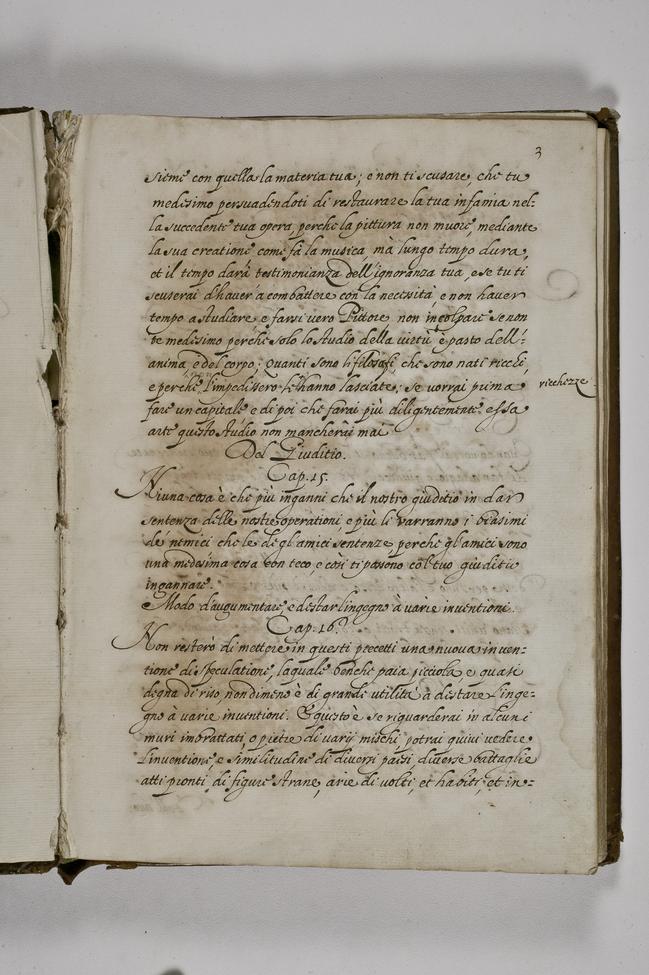 3
sieme con quella la materia tua; e non ti scusare, che tu
medesimo persuadendoti di restaurare la tua infamia nel=
la succedente tua opera, perche la pittura non muore, mediante
la sua creatione come fà la musica, mà lungo tempo dura,
et il tempo darà testimonianza dell'ignoranza tua, e se tu ti
scuserai d'haver'a combattere con la necessità, e non haver
tempo a studiare e farsi vero Pittore non incolpare se non
te medesimo perche solo lo studio della virtù è pasto dell'
anima, e del corpo; quanti sono li filosofi che sono nati ricchi,
e perche l'impedissero le hanno lasciate; se vorrai prima
ricchezze
fare un capitale e di poi che farai più diligentemente essa
arte questo studio non mancherai mai
Del Giuditio.
Cap. 15.
Niuna cosa è che più inganni che il nostro giudetio in dar
sentenza delle nostre operationi, e più li varranno i biasimi
de nemici che le de gl'amici sentenze, perche gl'amici sono
una medesima cosa con teco, e così ti passono col tuo giuditio
ingannare.
Modo d'augumentare, e destar l'ingegno à varie inventioni.
Cap. 16.
Non resterò di mettere in questi precetti una nuova inven=
tione di speculatione, laquale benche paia picciola, e quasi
degna di riso, non dimeno è di grande utilità à destare l'inge=
gno à varie inventioni. E questo è se riguarderai in alcuni
muri imbrattati, o pietre di varij mischi, potrai quivi vedere
l'inventione, e similitudine di diversi paesi, diverse battaglie
atti pronti, di figure strane, arie di volti, et habiti, et in=